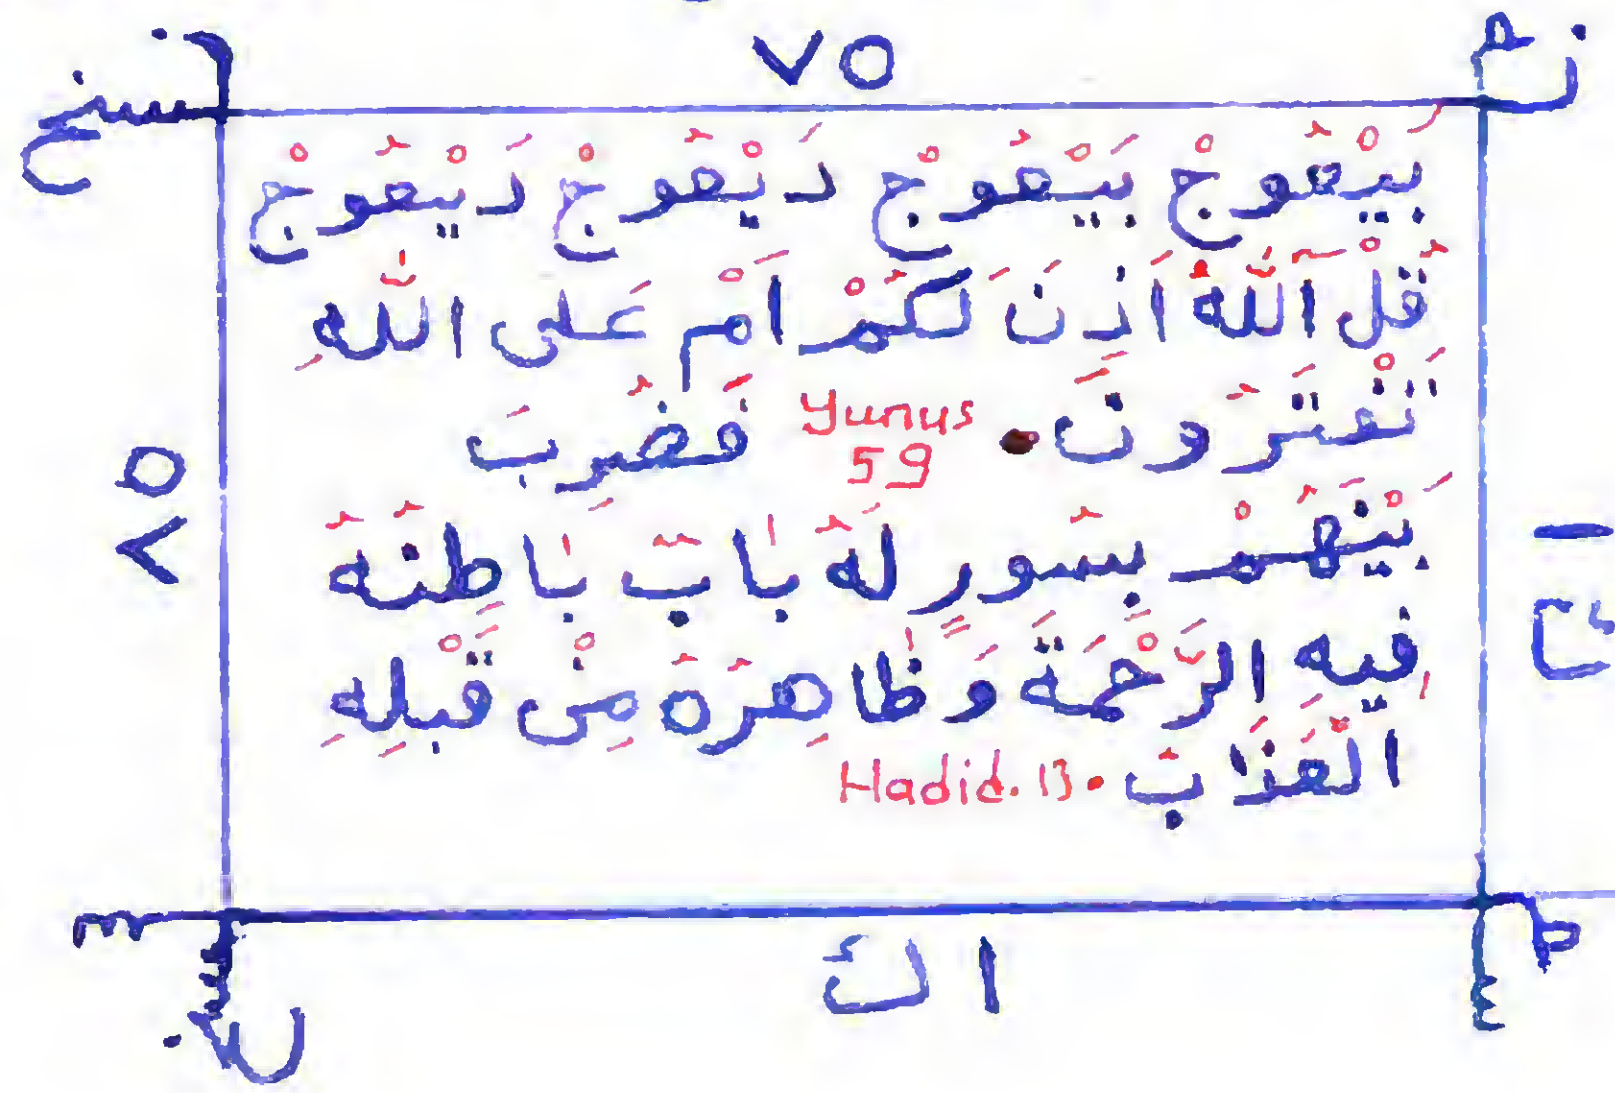 ٧٥
بَيْعُوجْ بَيْعُوجْ دَيْعُوجْ دَيْعُوجْ
قُلْ آللّٰهُ اَذِنَ لَكُمْ اَمْ عَلَى اللّٰهِ
تَفْتَرُونَ • Yunus 59 فَضُرِبَ
بَيْنَهُمْ بِسُورٍ لَهُ بَابٌ بَاطِنُهُ
فِيهِ الرَّحْمَةُ وَظَاهِرُهُ مِنْ قِبَلِهِ
الْعَذَابُ • Hadid. 13
٧٥
ا ك